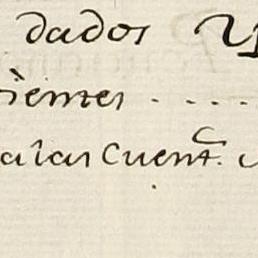 dados
ientes . . . .
a las Cuent.